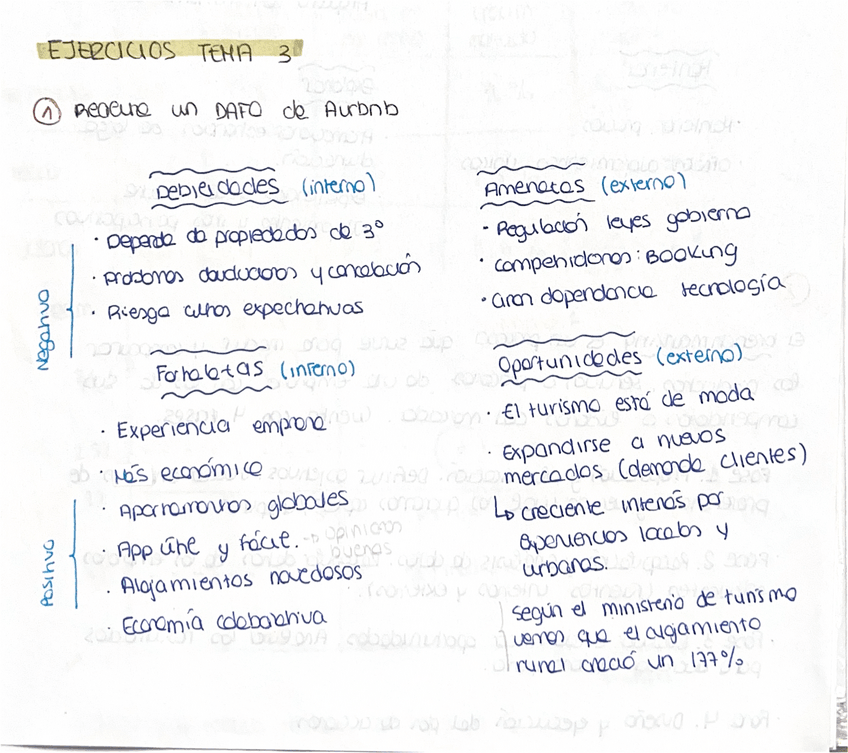 EJERCICIOS TEMA 3
① Realiza un DAFO de Airbnb
Debilidades (interno)
· Depende de propiedades de 3º
· Problemas devoluciones y cancelación
· Riesgo altas expectativas
Negativo
Amenazas (externo)
· Regulación leyes gobierno
· Competidores: BOOKING
· Gran dependencia tecnología
Fortalezas (interno)
· Experiencia empresa
· Más económico
· Apartamentos globales
· App útil y fácil. → opiniones
buenas
· Alojamientos novedosos
· Economía colaborativa
Positivo
Oportunidades (externo)
· El turismo está de moda
· Expandirse a nuevos
mercados (demanda clientes)
↳ creciente interés por
experiencias locales y
urbanas.
según el ministerio de turismo
vemos que el alojamiento
rural creció un 177%